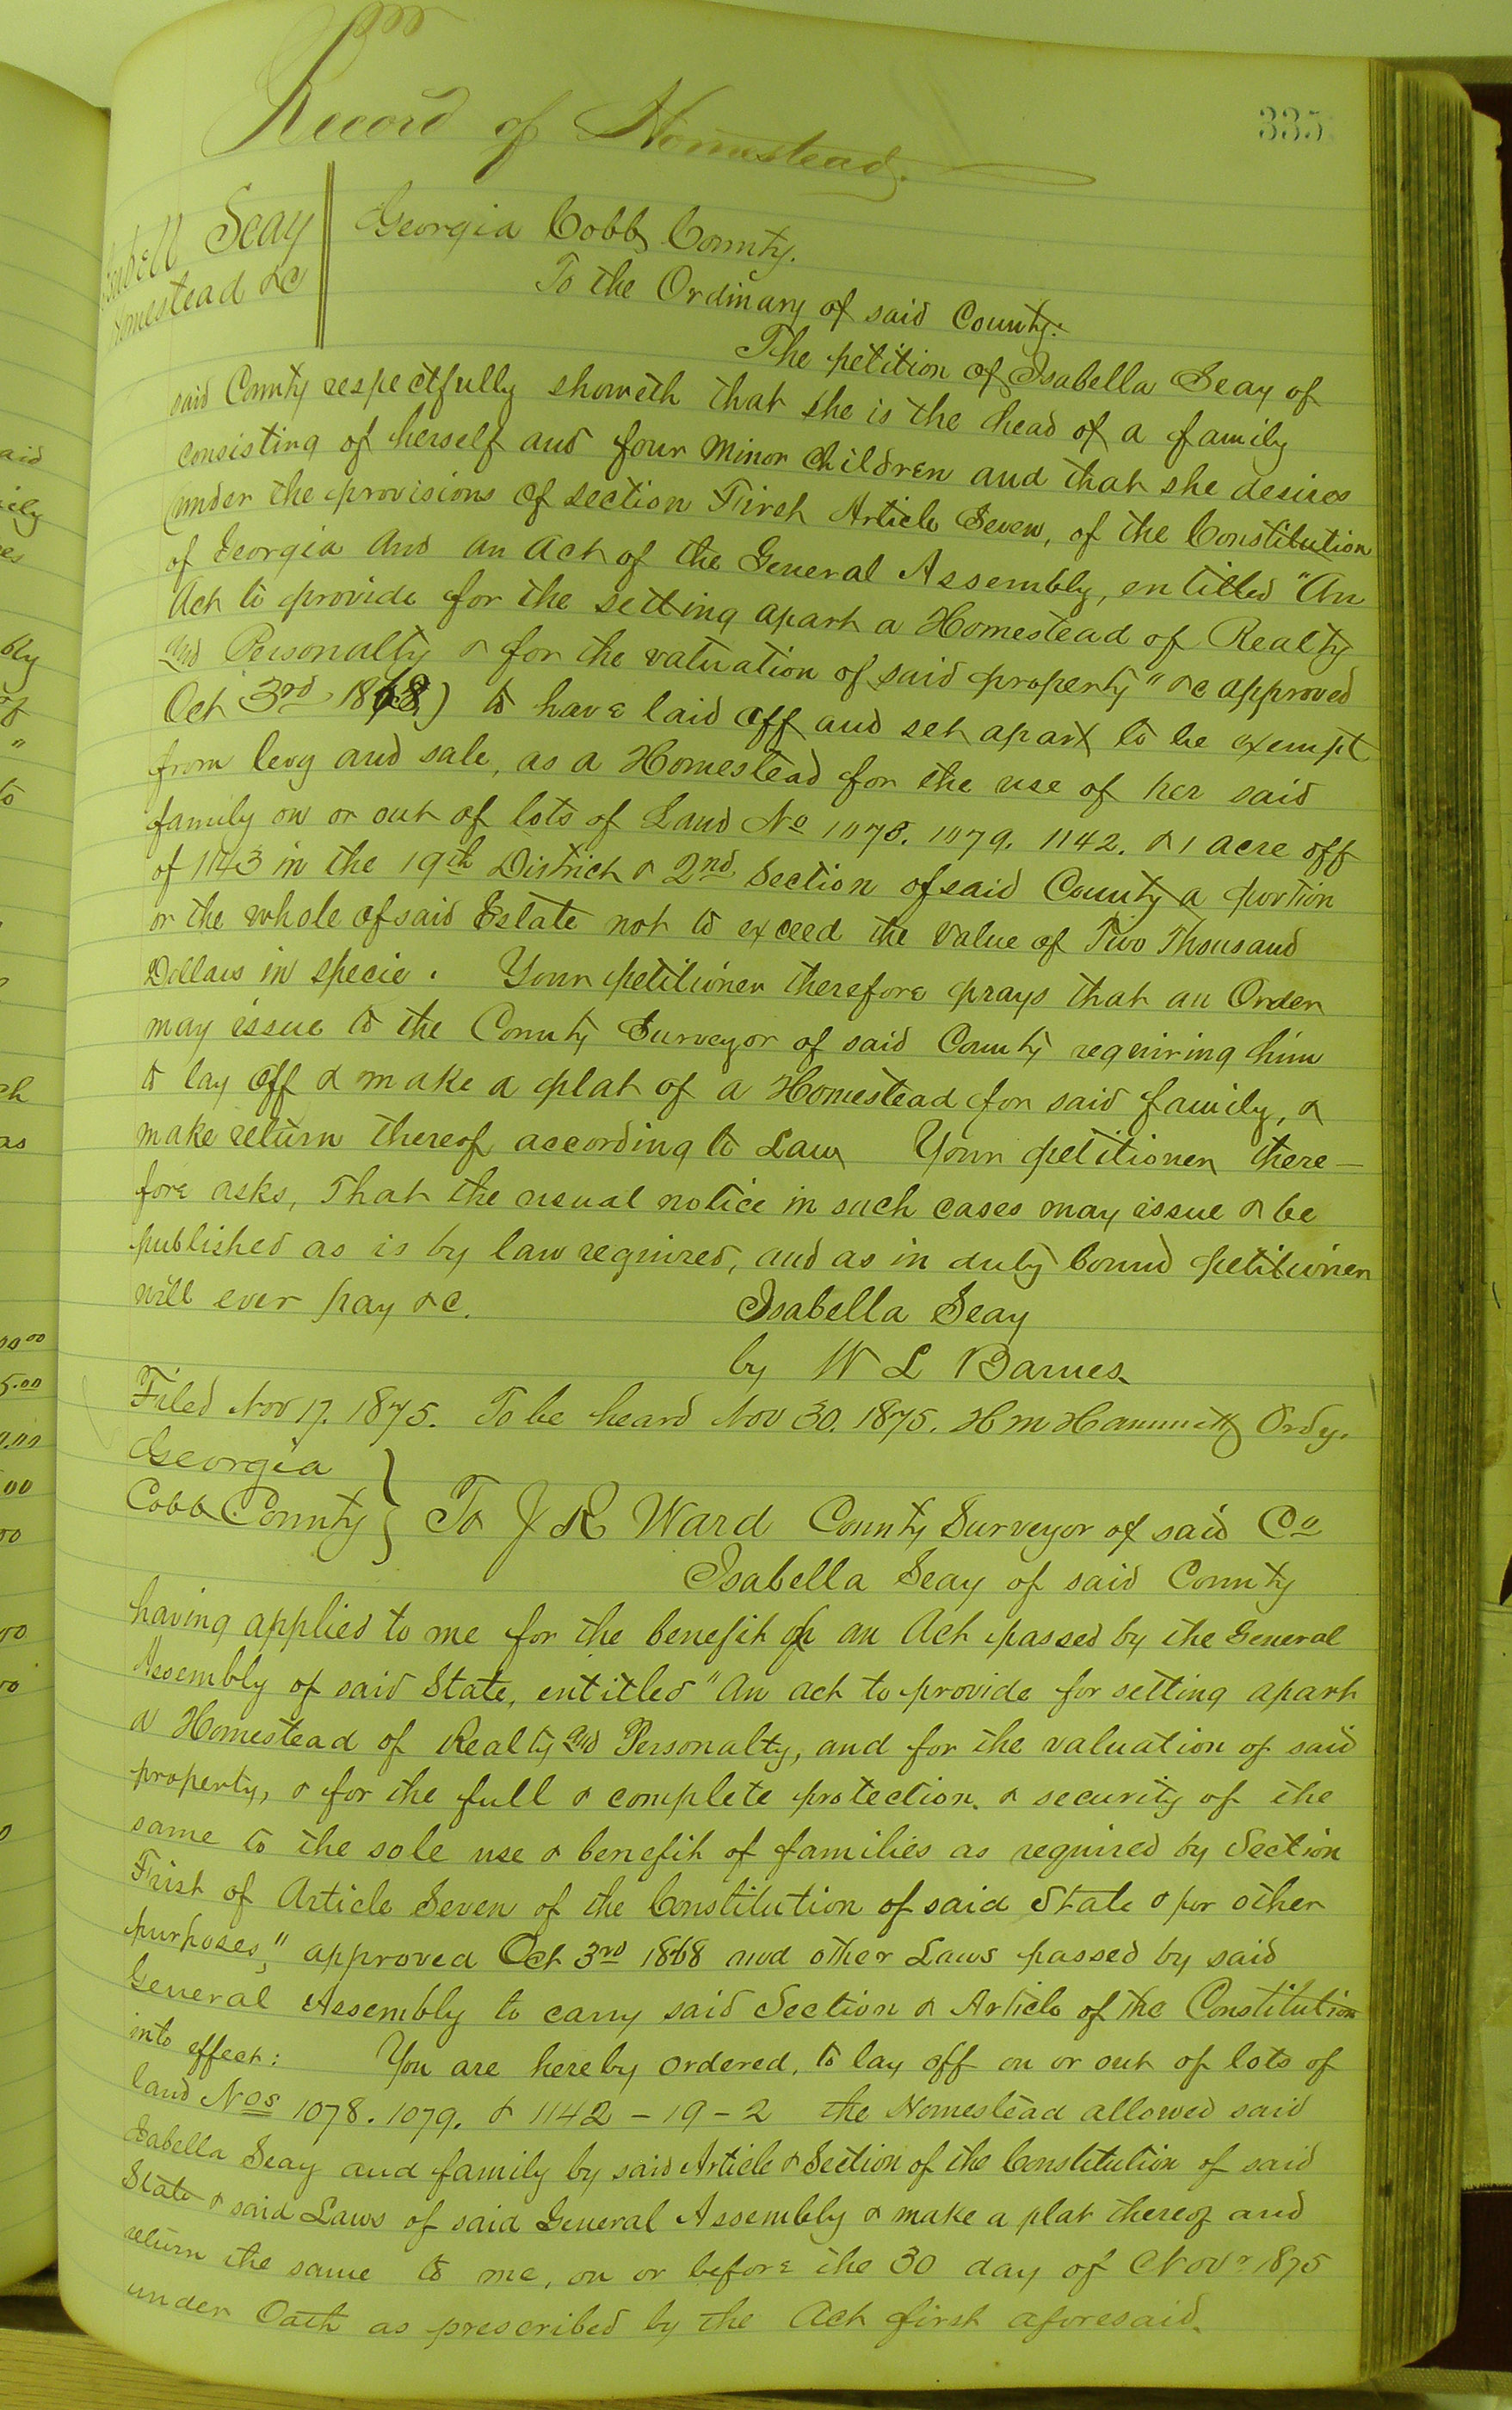 Record of Homestead.
335
Isabell Seay
Homestead &c
Georgia Cobb County.
To the Ordinary of said County:
The petition of Isabella Seay of
said County respectfully showeth that she is the head of a family
consisting of herself and four minor children and that she desires
(under the provisions of section First Article Seven, of the Constitution
of Georgia and an Act of the General Assembly, entitled "An
Act to provide for the setting apart a Homestead of Realty
and Personalty & for the valuation of said property" &c approved
Oct 3rd 1868) to have laid off and set apart to be exempt
from levy and sale, as a Homestead for the use of her said
family on or out of lots of Land No 1078. 1079. 1142. & 1 acre off
of 1143 in the 19th District & 2nd Section of said County a portion
or the whole of said Estate not to exceed the value of Two Thousand
Dollars in specie. Your petitioner therefore prays that an Order
may issue to the County Surveyor of said County requiring him
to lay off & make a plat of a Homestead for said family, &
make return thereof according to Law Your petitioner there-
fore asks, That the usual notice in such cases may issue & be
published as is by law required, and as in duty bound petitioner
will ever pay &c.
Isabella Seay
by W L Barnes
Filed Nov 17. 1875. To be heard Nov 30. 1875. H M Hammett Ordy.
Georgia
Cobb County } To J R Ward County Surveyor of said Co
Isabella Seay of said County
having applied to me for the benefit of an Act passed by the General
Assembly of said State, entitled "An act to provide for setting apart
a Homestead of Realty and Personalty, and for the valuation of said
property, & for the full & complete protection & security of the
same to the sole use & benefit of families as required by Section
Frist of Article Seven of the Constitution of said State & for other
purposes," approved Oct 3rd 1868 and other Laws passed by said
General Assembly to carry said Section & Article of the Constitution
into effect: You are hereby ordered, to lay off on or out of lots of
land Nos 1078. 1079. & 1142 - 19 - 2 the Homestead allowed said
Isabella Seay and family by said Article & Section of the Constitution of said
State & said Laws of said General Assembly & make a plat thereof and
return the same to me, on or before the 30 day of Novr 1875
under Oath as prescribed by the Act first aforesaid.